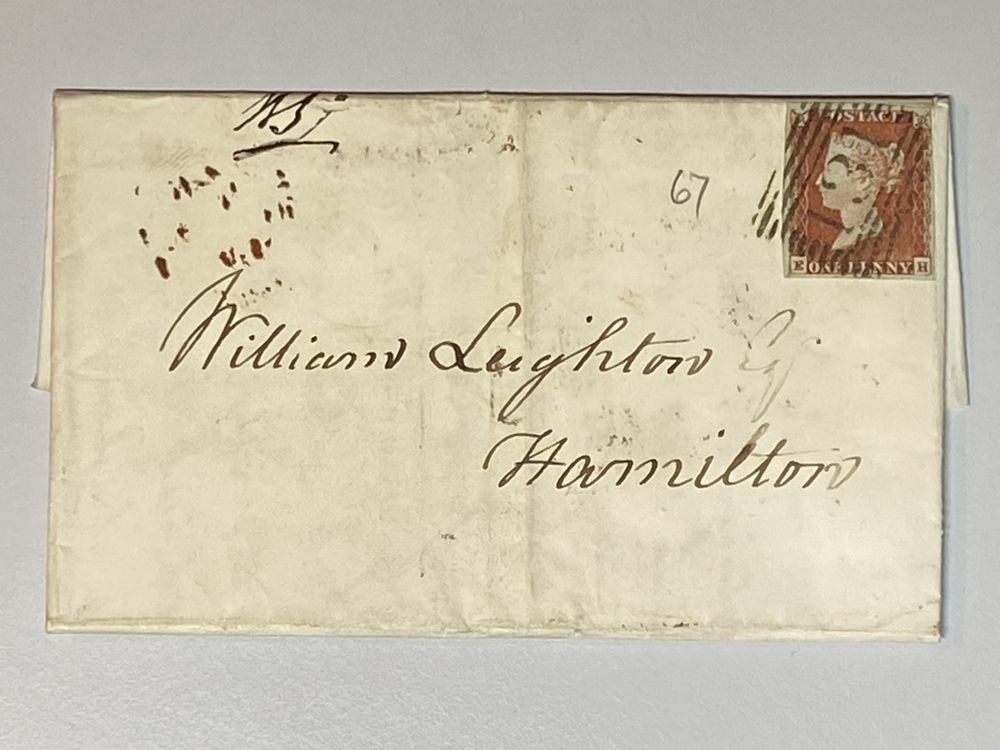 67
POSTAGE
E ONE PENNY H
William Leighton Esq
Hamilton